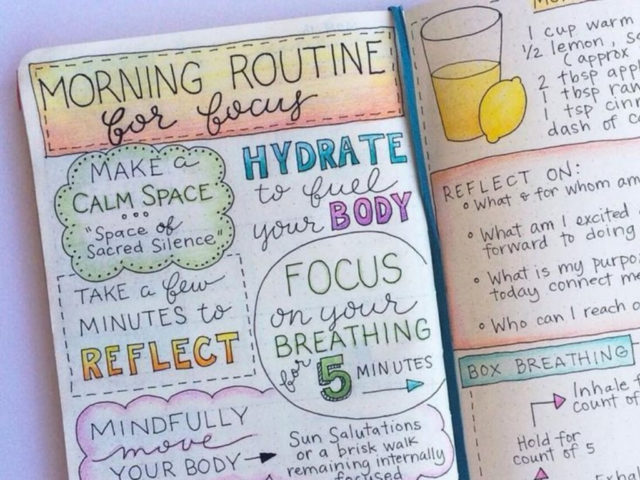 MORNING ROUTINE
for focus
MAKE a
CALM SPACE
"Space of
Sacred Silence"
HYDRATE
to fuel
your BODY
TAKE a few
MINUTES to
REFLECT
FOCUS
on your
BREATHING
for 5 MINUTES
MINDFULLY
move
YOUR BODY
Sun Salutations
or a brisk walk
remaining internally
focused
1 cup warm
1/2 lemon,
(approx
2 tbsp
1 tbsp
1 tsp
dash of
REFLECT ON:
What & for whom am
What am I excited
forward to doing
What is my
today connect
Who can I reach
BOX BREATHING
Inhale
count of
Hold for
count of 5